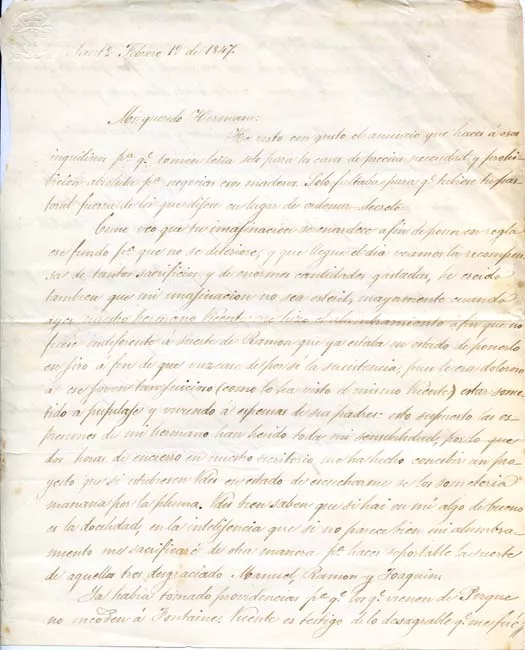 Sant.º Febrero 1º de 1847.
Mi querido Hermano:
He visto con gusto el anuncio que haces á esos
inquilinos p.ª q.e tomen leña solo para la casa de precisa necesidad y prohi-
bicion absoluta p.ª negociar con maderas. Solo faltaba para q.e tubiese
fuerza de lei que dijese en lugar de ordeno decreto.
Como veo que tu imajinacion se enardece a fin de poner en regla
ese fundo p.ª que no se deteriore, y que llegue el dia veamos la recompen-
sa de tantos sacrificios y de enormes cantidades gastadas, he creido
tambien que mi imajinacion no sea esteril, mayormente cuando
ayer nuestro hermano Vicente me hizo el alumbramiento á fin que no
fuese indiferente á suerte de Ramon que ya estaba en estado de ponerlo
en jiro á fin de que buscase de por sé la subsistencia, pues le era doloroso
a ese joven tan juicioso (como lo ha visto el mismo Vicente) estar some-
tido a pupilaje y viviendo á espensas de sus padres: esto supuesto las es-
presiones de mi hermano han herido toda mi sensibilidad, por lo que
dos horas de encierro en nuestro escritorio me ha hecho concebir un pro-
yecto que si estubiesen Vdes en estado de escucharme se los sometería
mañana por la pluma. Vdes bien saben que si hai en mi algo de bueno
es la docilidad, en la intelijencia que si no parece bien mi alumbra-
miento me sacrificaré de otra manera p.ª hacer soportable la suerte
de aquellos tres desgraciado Manuel, Ramon y Joaquin.
Ya habia tomado providencias p.ª q.e los q.e vienen de Perque
no incoden á Fontaine. Vicente es testigo de lo desagrable q.e me fué